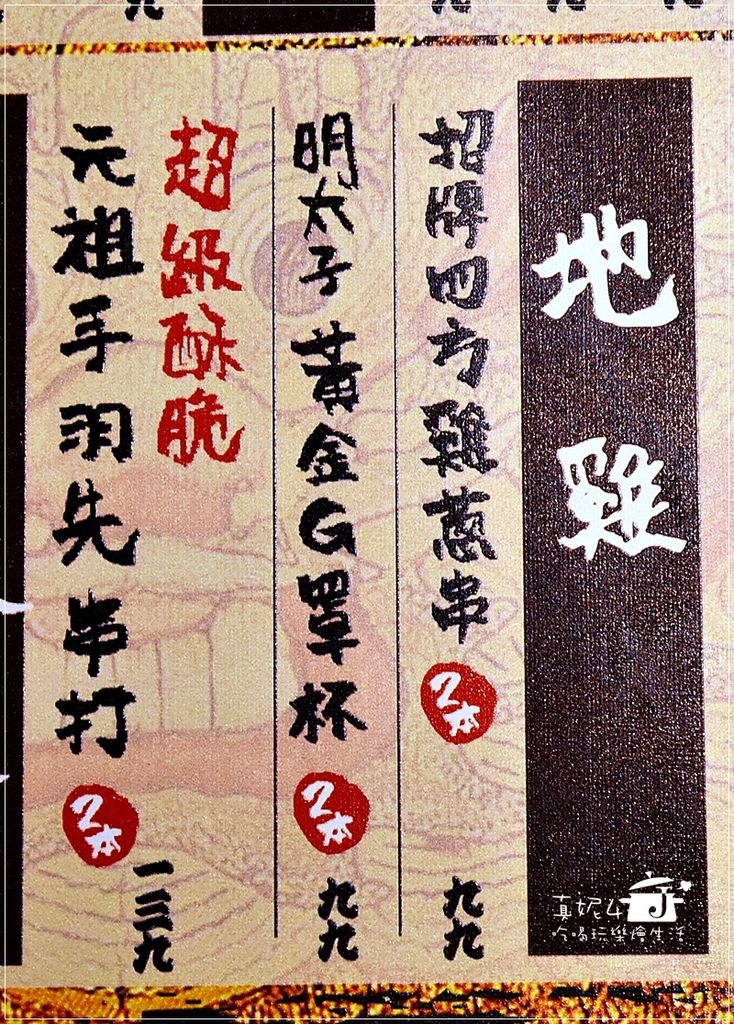 地雞
招牌四方雞蔥串
2本
九九
明太子黃金G罩杯
2本
九九
超級酥脆
元祖手羽先串打
2本
一三九
真妮4J
吃喝玩樂燴生活